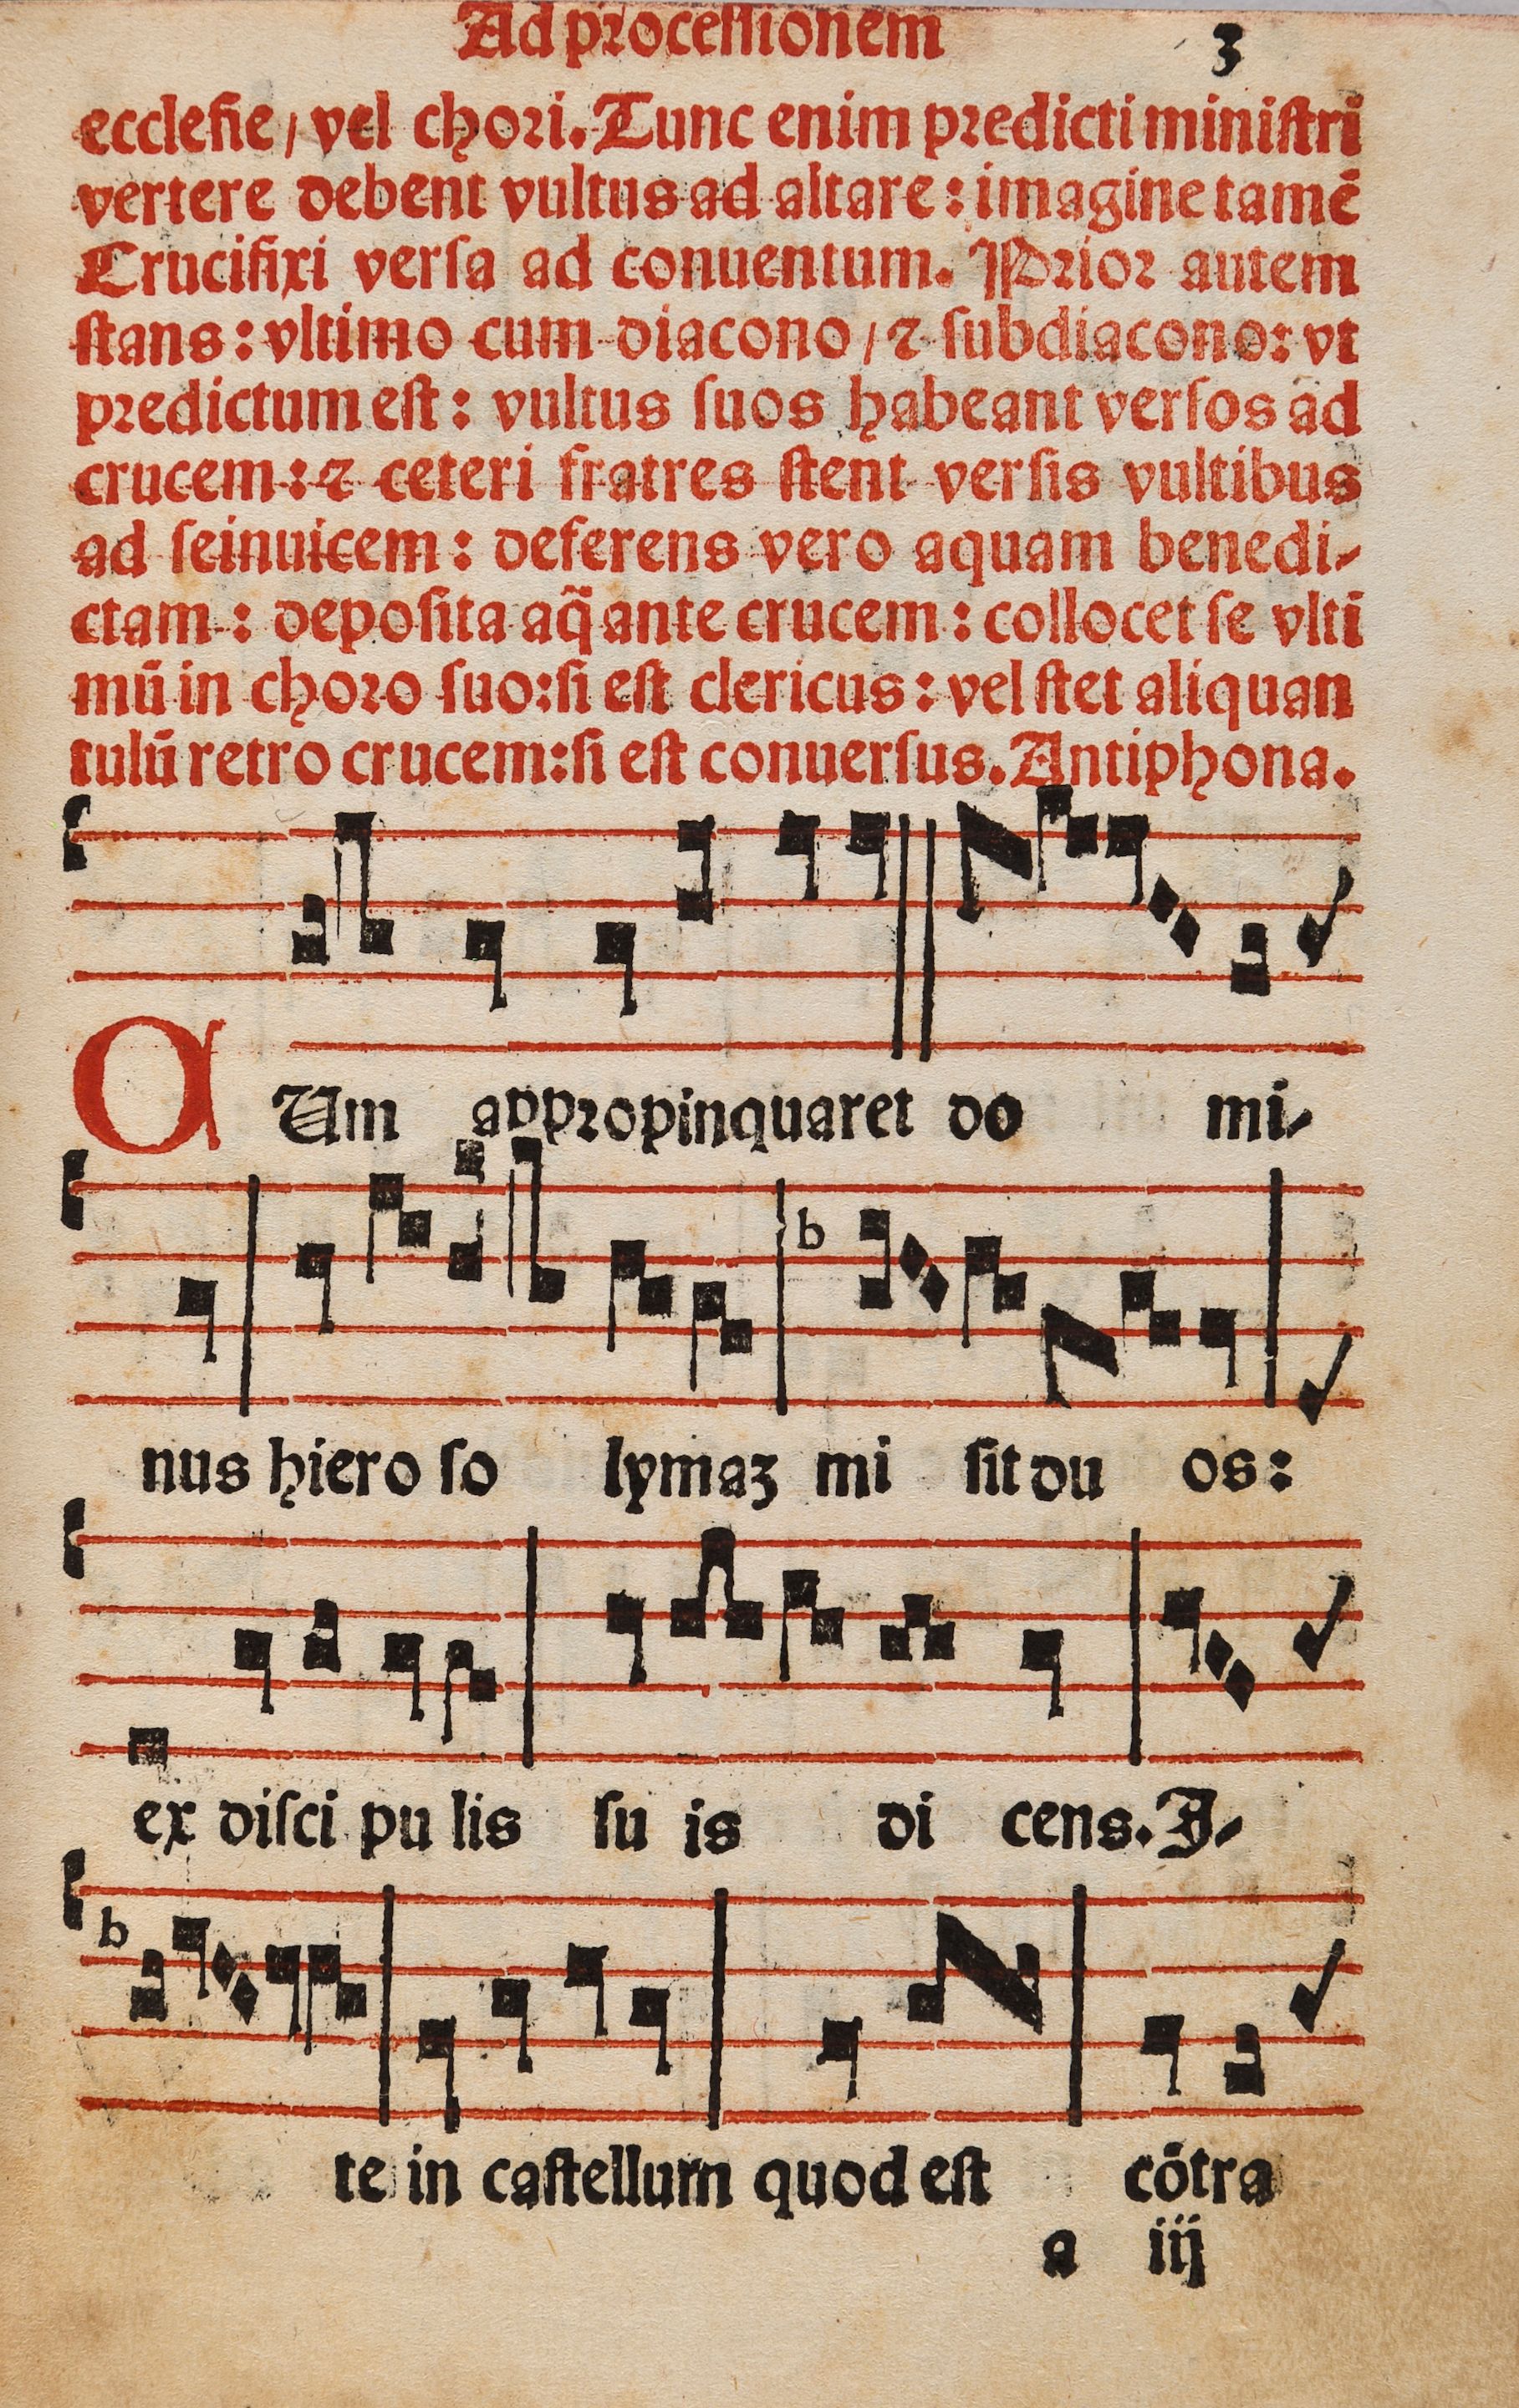 Ad processionem 3
ecclesie / vel chori. Tunc enim predicti ministri
vertere debent vultus ad altare: imagine tamē
Crucifixi versa ad conuentum. Prior autem
stans: vltimo cum diacono / ⁊ subdiacono: vt
predictum est: vultus suos habeant versos ad
crucem: ⁊ ceteri fratres stent versis vultibus
ad seinuicem: deferens vero aquam benedi-
ctam: deposita aq̄ ante crucem: collocet se vlti
mū in choro suo: si est clericus: vel stet aliquan
tulū retro crucem: si est conuersus. Antiphona.
CUm appropinquaret do mi-
b
nus hiero so lymaꝫ mi sit du os:
ex disci pu lis su is di cens. I-
b
te in castellum quod est cōtra
a iij